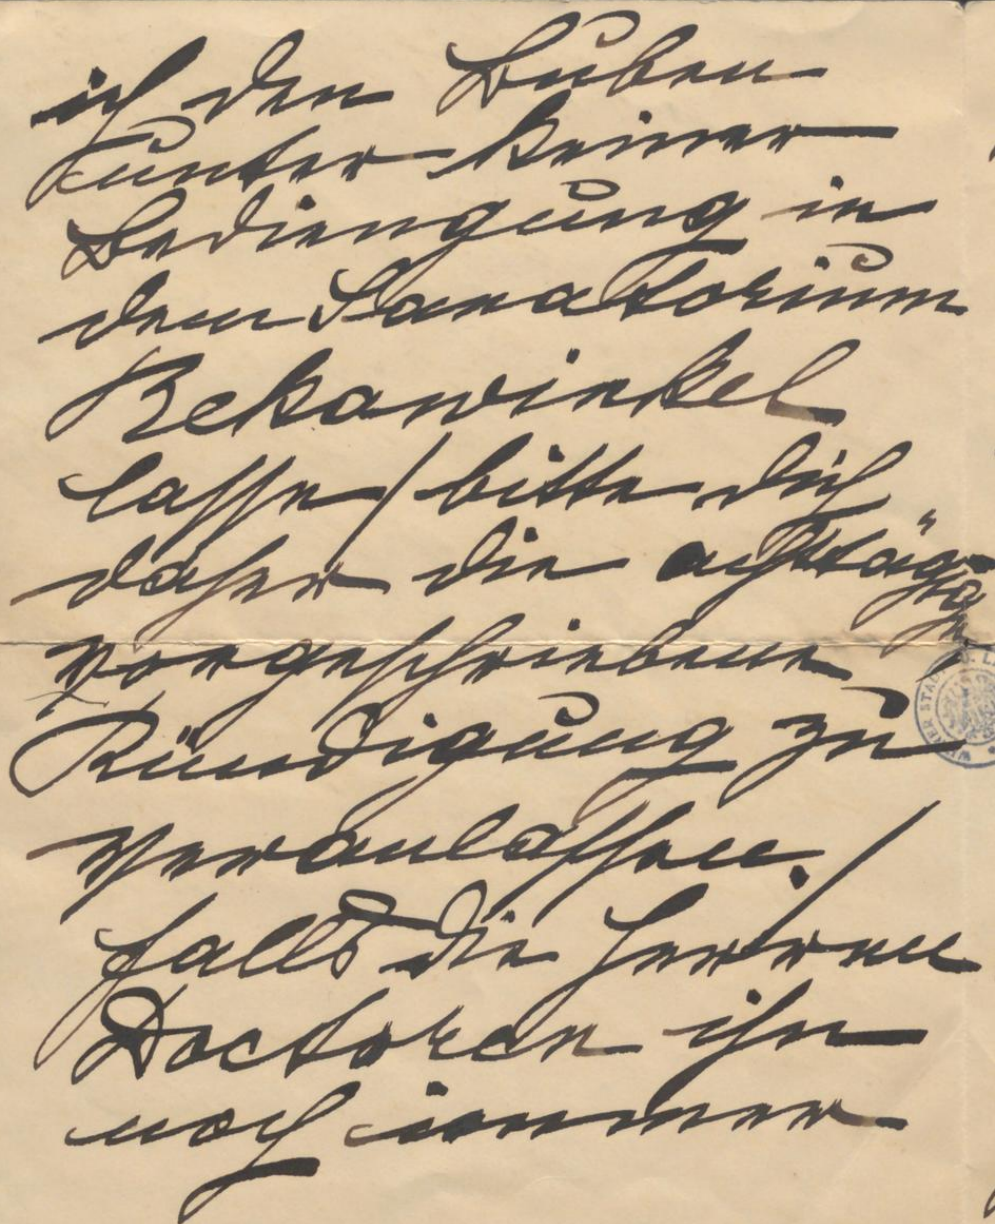 ich den Buben
unter keiner
Bediengung in
dem Sanatorium
Rekawinkel
lasse / bitte dich
daher die achttägige
vorgeschriebene
Kündigung zu
veranlassen. /
falls die Herren
Doctoren ihn
noch immer